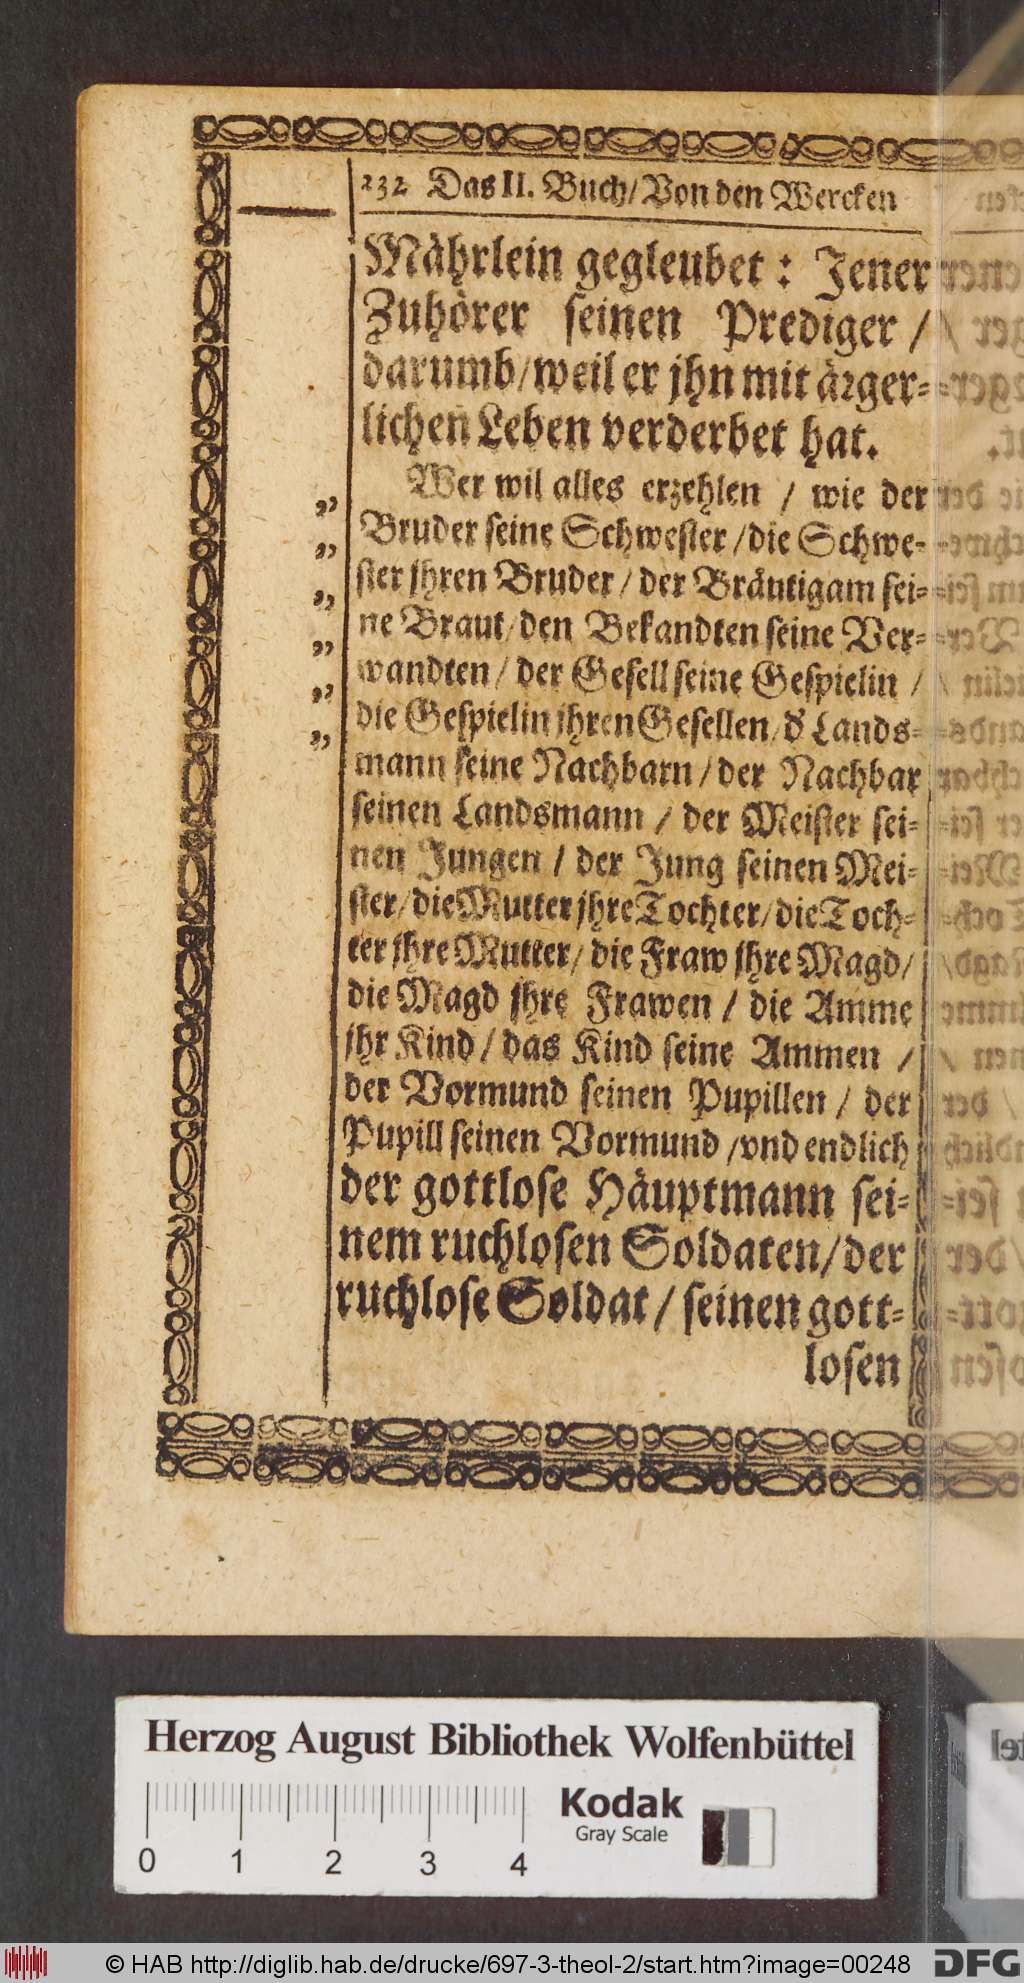 232 Das II. Buch/Von den Wercken
Mährlein gegleubet: Jener
Zuhörer seinen Prediger /
darumb/weil er jhn mit ärger-
lichen Leben verderbet hat.
„ Wer wil alles erzehlen / wie der
„ Bruder seine Schwester /die Schwe-
„ ster jhren Bruder / der Bräutigam sei-
„ ne Braut/den Bekandten seine Ver-
„ wandten / der Gesell seine Gespielin /
„ die Gespielin jhren Gesellen/ď Lands-
mann seine Nachbarn / der Nachbar
seinen Landsmann / der Meister sei-
nen Jungen / der Jung seinen Mei-
ster/die Mutter jhre Tochter/die Toch-
ter jhre Mutter/ die Fraw jhre Magd/
die Magd jhre Frawen / die Amme
jhr Kind / das Kind seine Ammen /
der Vormund seinen Pupillen / der
Pupill seinen Vormund /vnd endlich
der gottlose Häuptmann sei-
nem ruchlosen Soldaten/der
ruchlose Soldat / seinen gott-
losen
Herzog August Bibliothek Wolfenbüttel
Kodak
Gray Scale
0 1 2 3 4
© HAB http://diglib.hab.de/drucke/697-3-theol-2/start.htm?image=00248
DFG